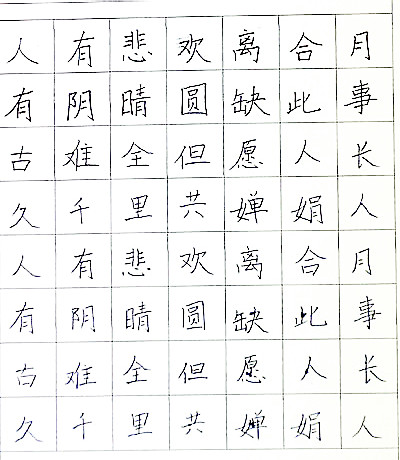 人有悲欢离合月
有阴晴圆缺此事
古难全但愿人长
久千里共婵娟人
人有悲欢离合月
有阴晴圆缺此事
古难全但愿人长
久千里共婵娟人